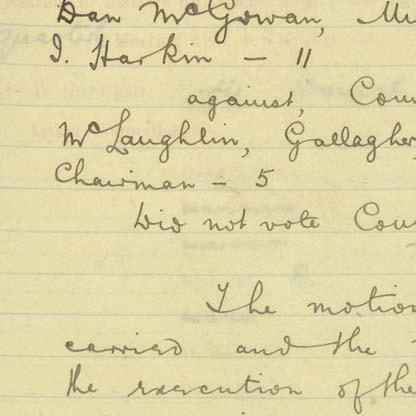 Dan McGowan,
I. Harkin - 11
against,
McLaughlin, Gallagher
Chairman - 5
Did not vote
The motion
carried and the
the execution of the